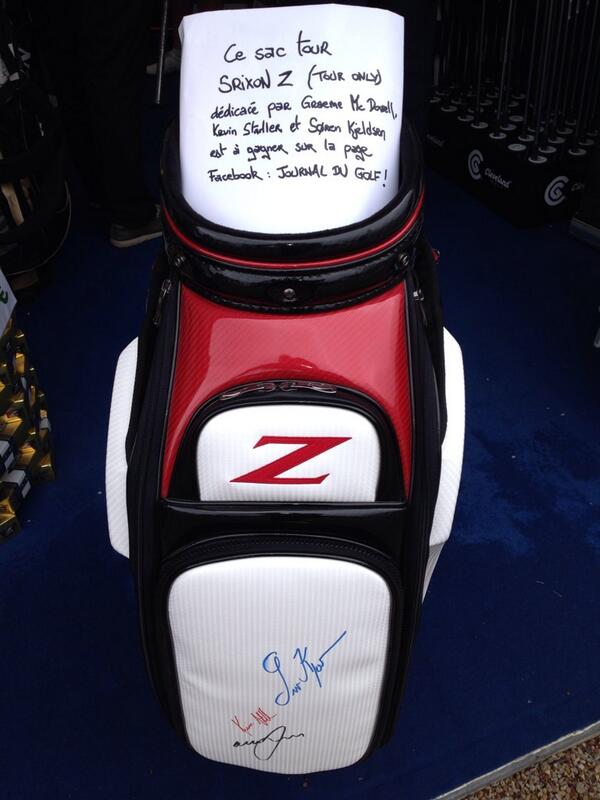 Ce sac tour
SRIXON Z (TOUR ONLY)
dédicacé par Graeme Mc Dowell,
Kevin Stadler et Søren Kjeldsen
est à gagner sur la page
Facebook : JOURNAL DU GOLF !
Cleveland
Z